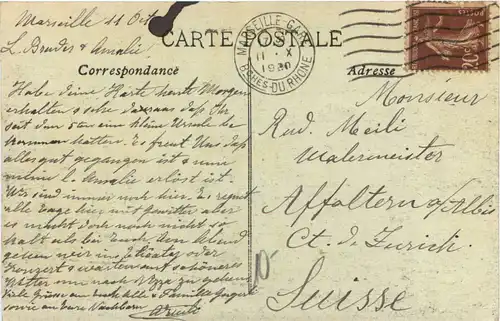 Marseille 11 Oct
L. Bruder & Amalie
CARTE POSTALE
Correspondance
Adresse
MARSEILLE-GARE
11 - X
1930
BCHES-DU-RHONE
20c
Habe deine Karte heute Morgen
erhalten & sehe daraus daß Ihr
seit dem 5ten eine kleine Ursula be
kommen hattet. Es freut Uns daß
alles gut gegangen ist & nun
meine l. Amalie erlöst ist.
Wir sind immer noch hier. Es regnet
alle Tage hier mit Gewitter aber
es macht doch noch nicht so
kalt als bei Euch. Am Abend
gehen wir ins Theater oder
Konzert & warten auf schöneres
Wetter um nach Nizza zu gehen
Viele Grüße an Euch alle & Familie
sowie an Eure Nachbarn
Monsieur
Rud. Meili
Malermeister
Affoltern a/Albis
Ct. de Zurich.
Suisse
10-